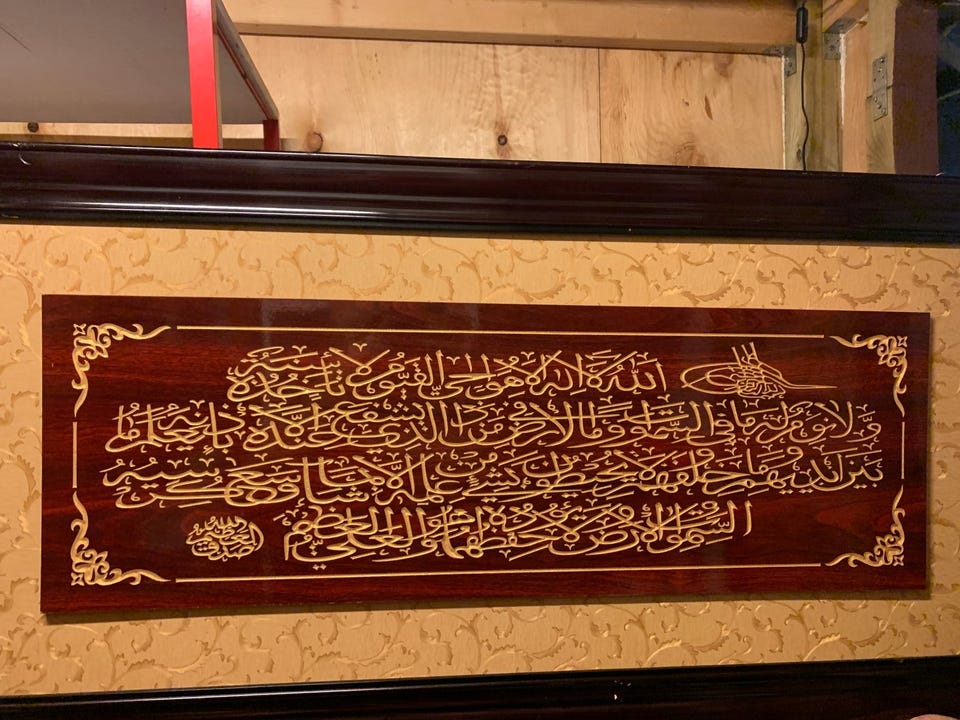 بسم الله الرحمن الرحيم
الله لا إله إلا هو الحي القيوم لا تأخذه سنة
ولا نوم له ما في السموات وما في الأرض من ذا الذي يشفع عنده إلا بإذنه يعلم ما
بين أيديهم وما خلفهم ولا يحيطون بشيء من علمه إلا بما شاء وسع كرسيه
السموات والأرض ولا يؤده حفظهما وهو العلي العظيم
صدق الله العظيم